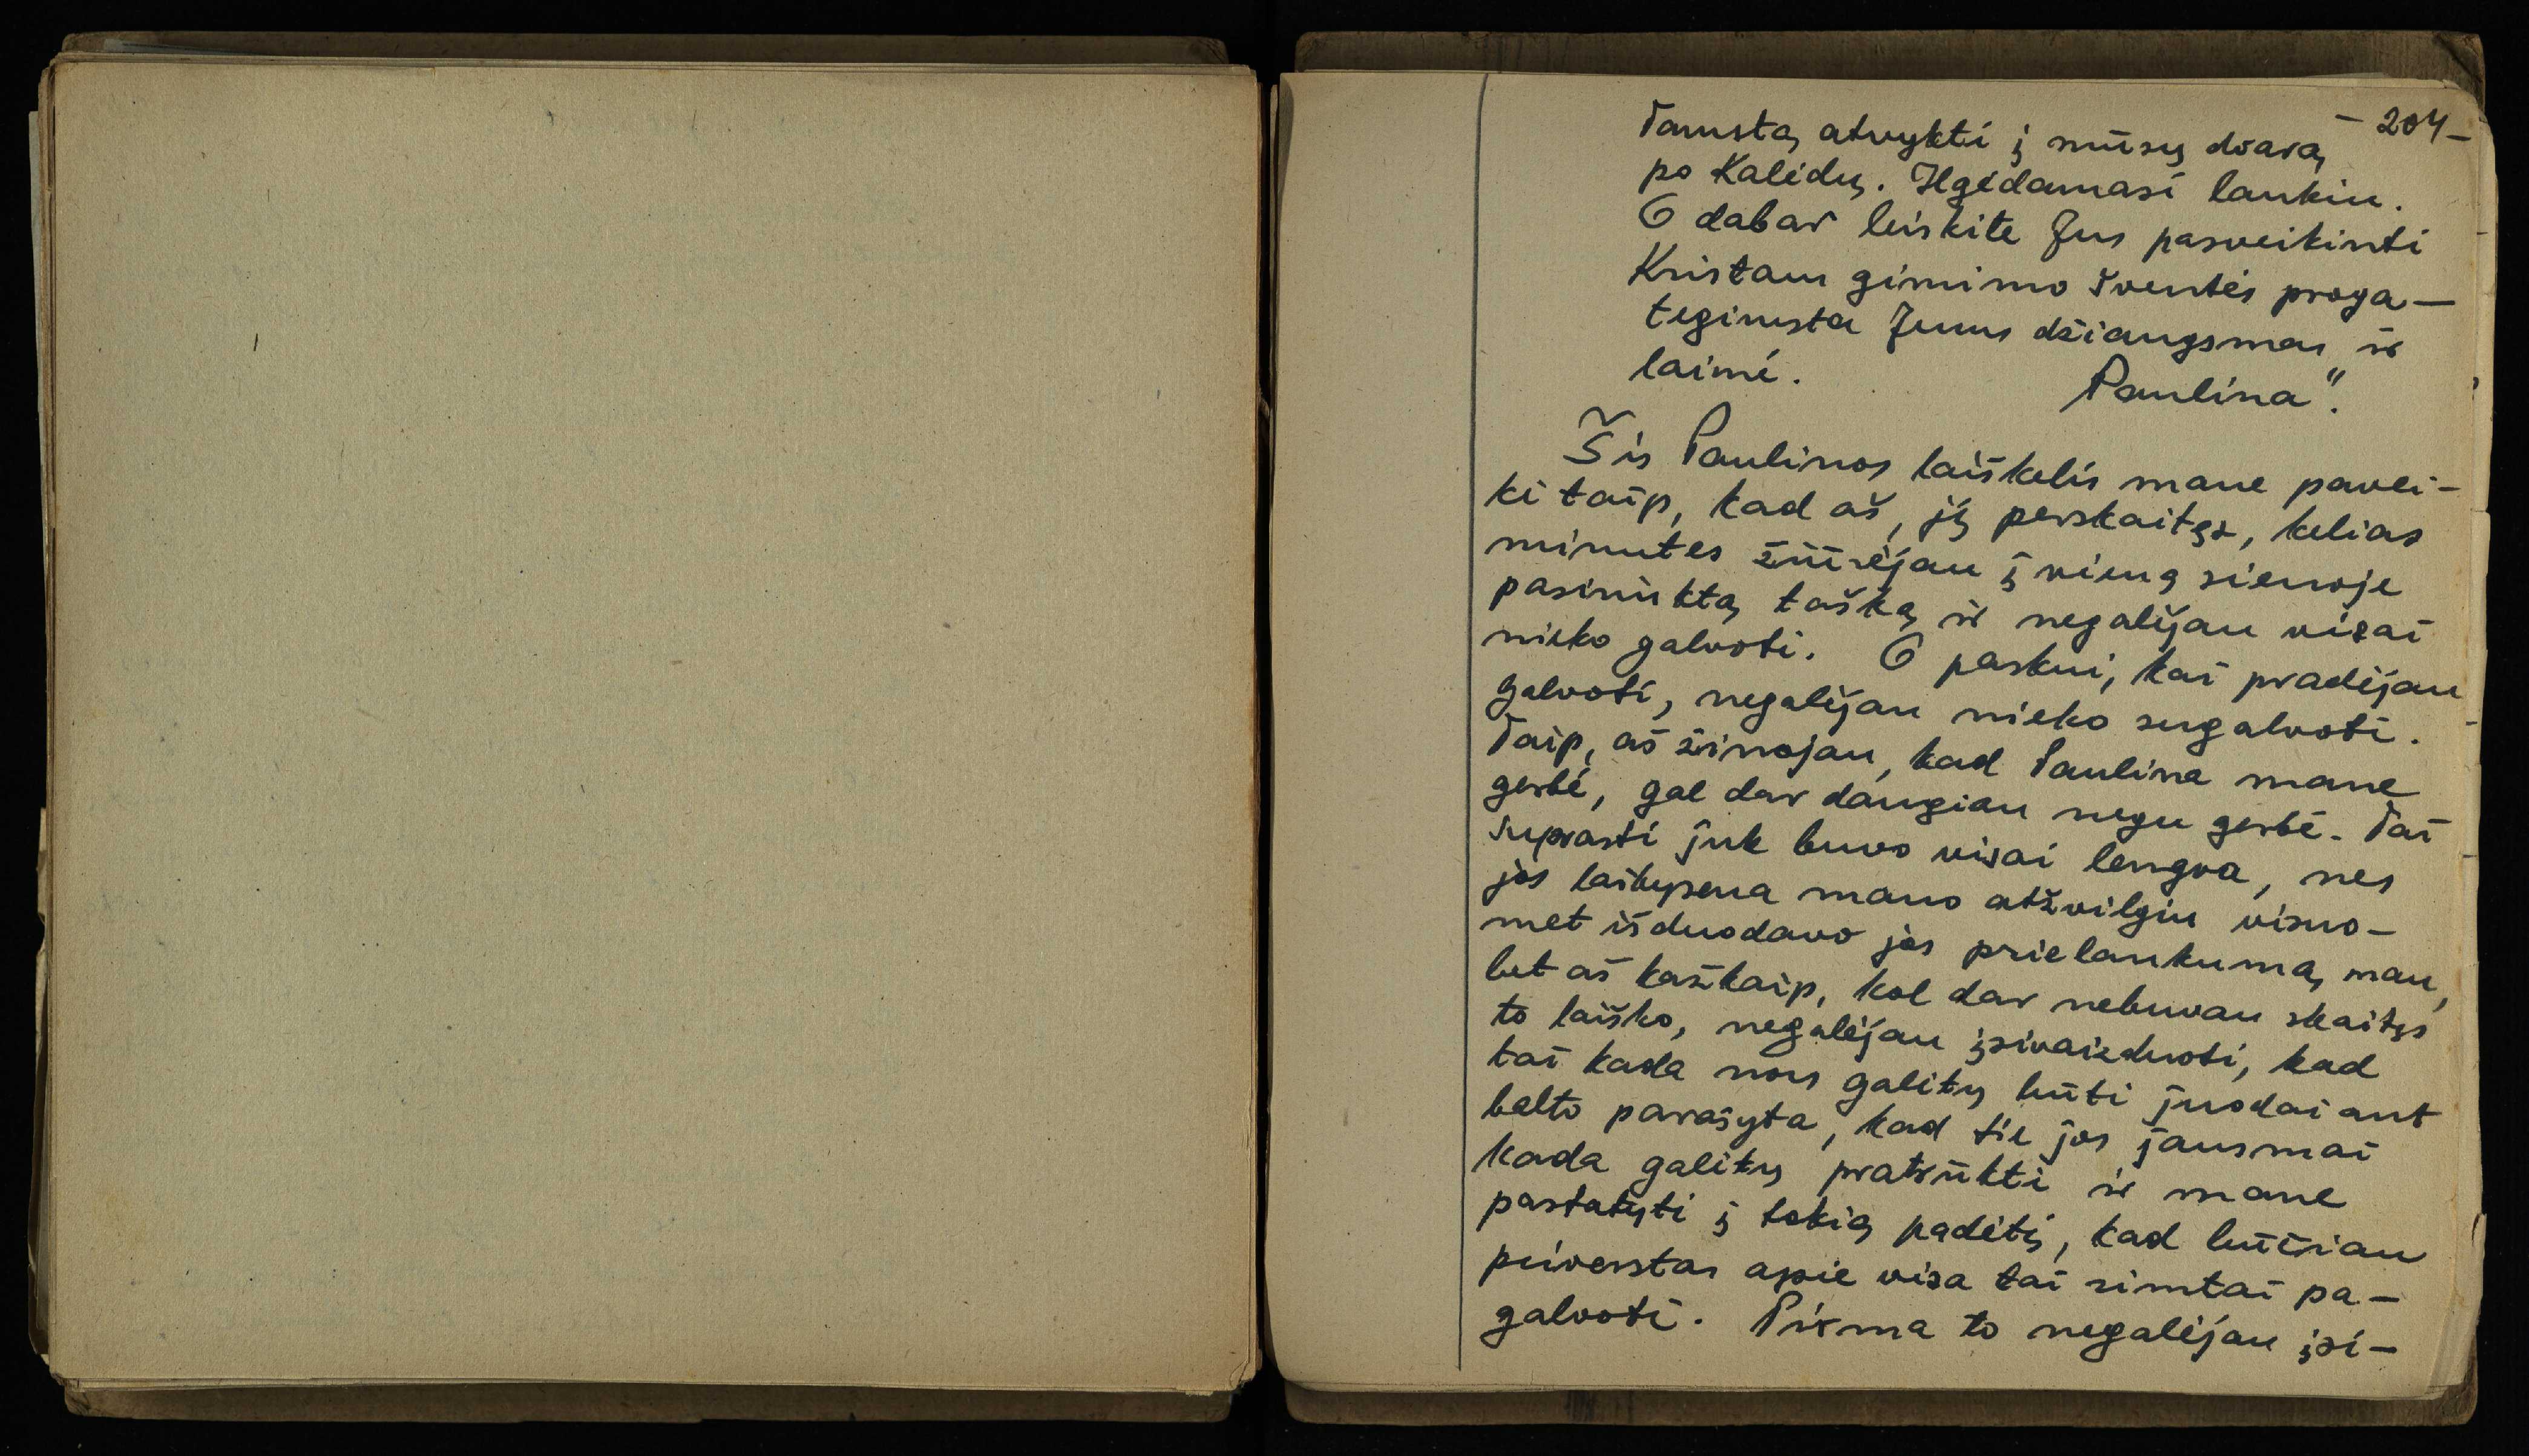 - 204 -
Tamstą atvykti į mūsų dvarą
po Kalėdų. Ilgėdamasi laukiu.
O dabar leiskite Jus pasveikinti
Kristaus gimimo šventės proga—
tegimsta Jums džiaugsmas ir
laimė.
Paulina".
Šis Paulinos laiškelis mane pavei-
kė taip, kad aš, jį perskaitęs, kelias
minutes žiūrėjau į vieną sienoje
pasirinktą tašką ir negalėjau visai
nieko galvoti. O paskui, kai pradėjau
galvoti, negalėjau nieko sugalvoti.
Taip, aš žinojau, kad Paulina mane
gerbė, gal dar daugiau negu gerbė. Tai
suprasti juk buvo visai lengva, nes
jos laikysena mano atžvilgiu visuo-
met išduodavo jos prielankumą man,
bet aš kažkaip, kol dar nebuvau skaitęs
to laiško, negalėjau įsivaizduoti, kad
tai kada nors galėtų būti juodai ant
balto parašyta, kad tie jos jausmai
kada galėtų pratrūkti ir mane
pastatyti į tokią padėtį, kad būčiau
priverstas apie visa tai rimtai pa-
galvoti. Pirma to negalėjau įsi-